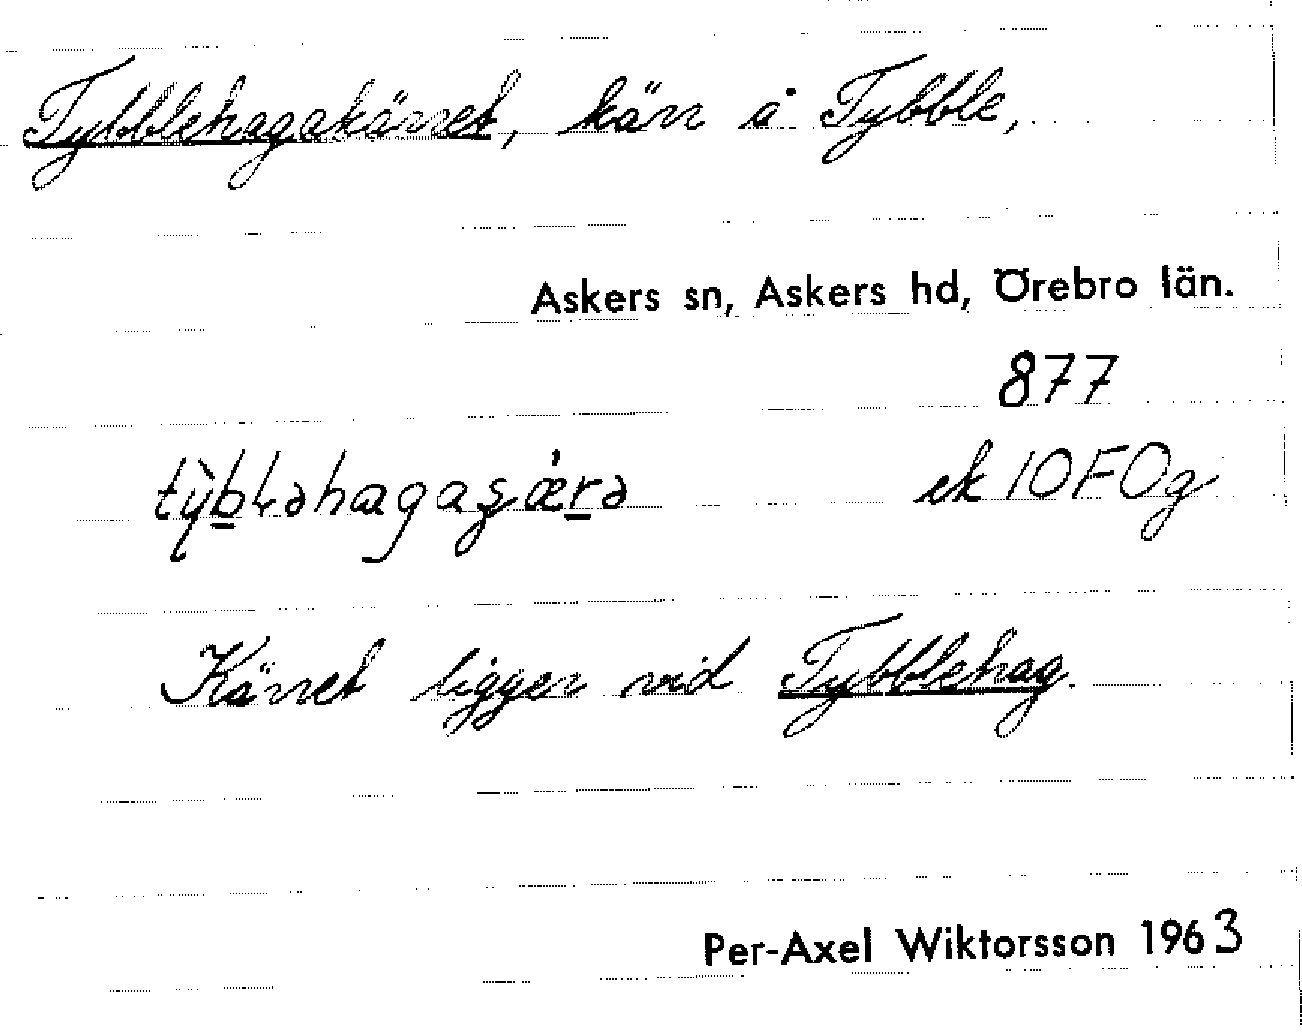 Tybblehagakärret, kärr å Tybble,
Askers sn, Askers hd, Örebro län.
877
ty̆̀b̲ɬəhagaʂǽr̲ə ek 10F0g
Kärret ligger vid Tybblehag.
Per-Axel Wiktorsson 1963